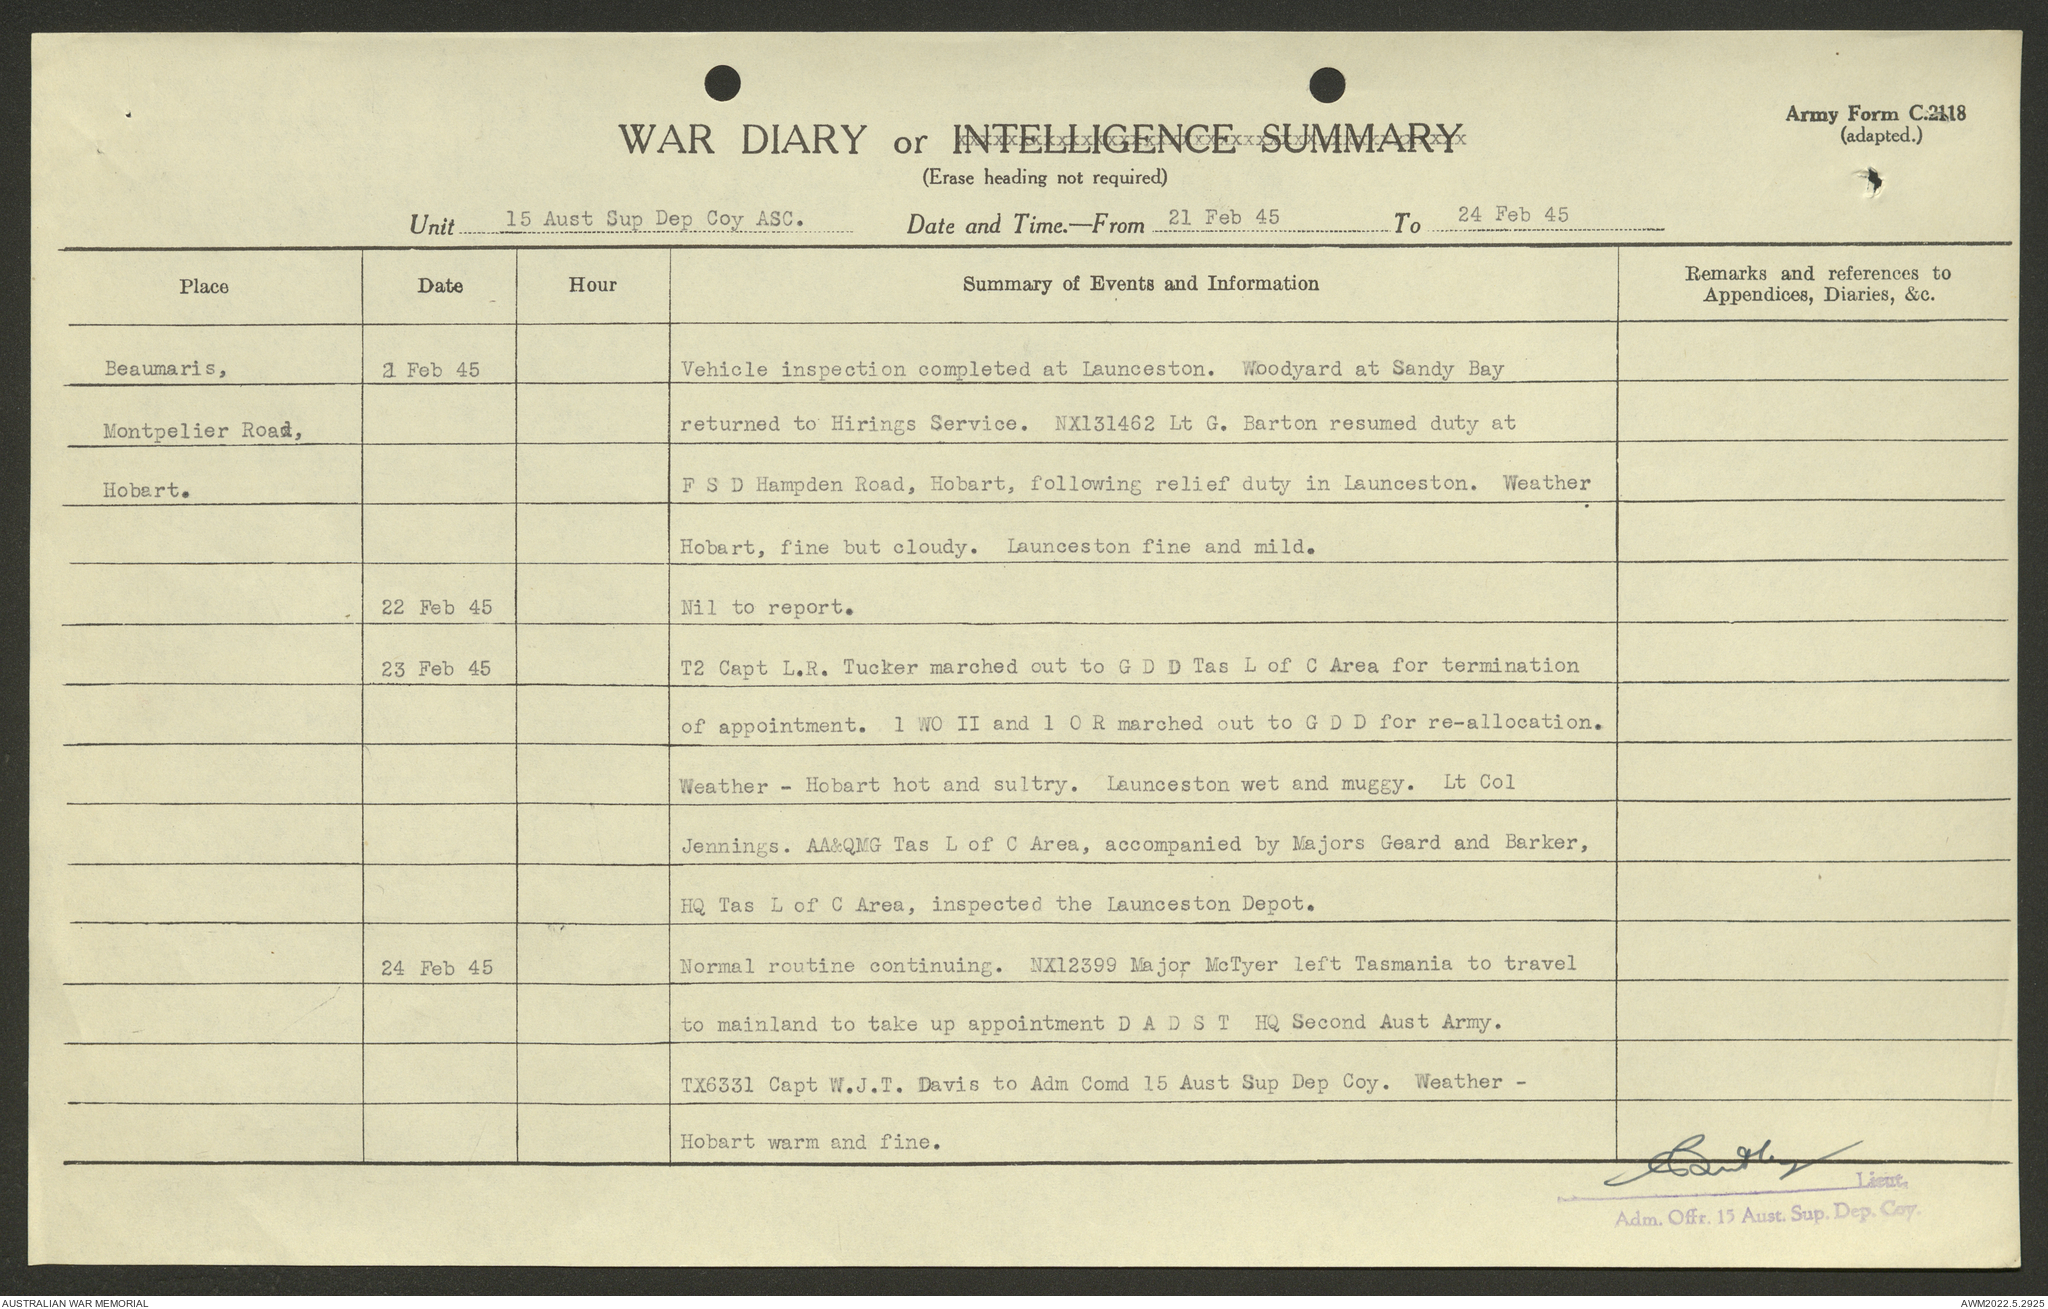 Army Form C.2118
(adapted.)
WAR DIARY or INTELLIGENCE SUMMARY
(Erase heading not required)
Unit 15 Aust Sup Dep Coy ASC. Date and Time.—From 21 Feb 45 To 24 Feb 45
Place Date Hour Summary of Events and Information Remarks and references to
Appendices, Diaries, &c.
Beaumaris, 21 Feb 45 Vehicle inspection completed at Launceston. Woodyard at Sandy Bay
Montpelier Road, returned to Hirings Service. NX131462 Lt G. Barton resumed duty at
Hobart. F S D Hampden Road, Hobart, following relief duty in Launceston. Weather
Hobart, fine but cloudy. Launceston fine and mild.
22 Feb 45 Nil to report.
23 Feb 45 T2 Capt L.R. Tucker marched out to G D D Tas L of C Area for termination
of appointment. 1 WO II and 1 O R marched out to G D D for re-allocation.
Weather - Hobart hot and sultry. Launceston wet and muggy. Lt Col
Jennings. AA&QMG Tas L of C Area, accompanied by Majors Geard and Barker,
HQ Tas L of C Area, inspected the Launceston Depot.
24 Feb 45 Normal routine continuing. NX12399 Major McTyer left Tasmania to travel
to mainland to take up appointment D A D S T HQ Second Aust Army.
TX6331 Capt W.J.T. Davis to Adm Comd 15 Aust Sup Dep Coy. Weather -
Hobart warm and fine.
Lieut.
Adm. Offr. 15 Aust. Sup. Dep. Coy.
AUSTRALIAN WAR MEMORIAL AWM2022.5.2925